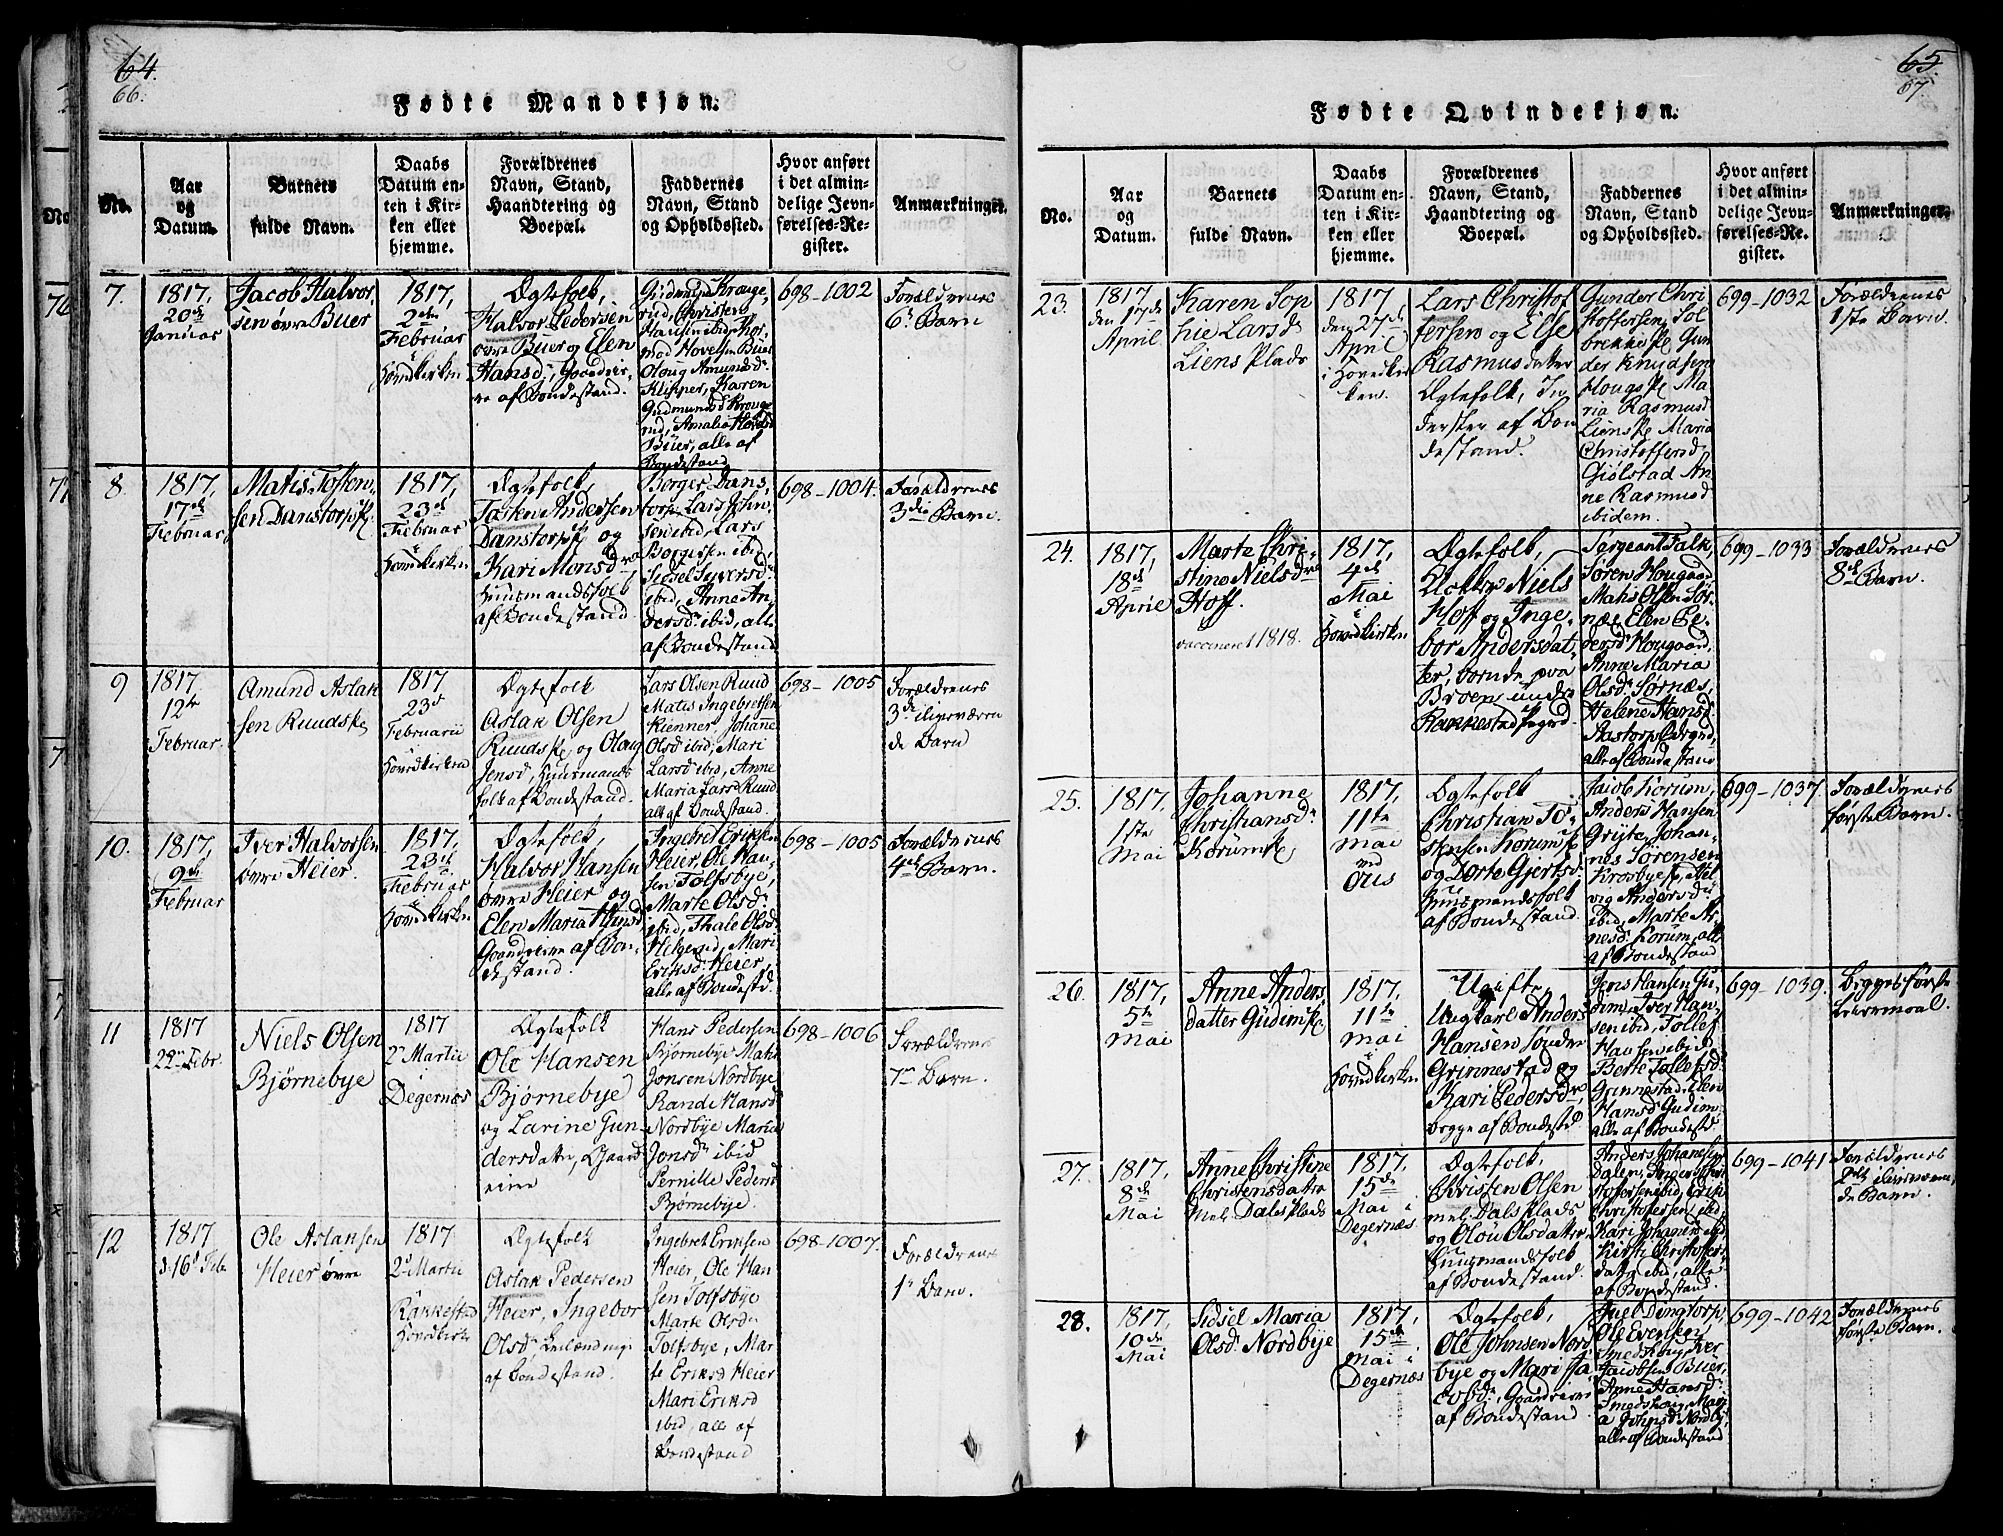 64.
66.
Fødte Mandkjøn.
No.
Aar
og
Datum.
Barnets
fulde Navn.
Daabs
Datum en-
ten i Kir-
ken eller
hjemme.
Forældrenes
Navn, Stand,
Haandtering og
Boepæl.
Faddernes
Navn, Stand
og Opholdssted.
Hvor anført
i det almin-
delige Jevn-
førelses-Re-
gister.
Anmærkninger.
7.
1817,
20de
Januar
Jacob Halvor
sen øvre Buer
1817,
2den
Februar
i
Hovedkirken
Ægtefolk,
Halvor Pedersen
øvre Buer og Elen
Hansd: Gaardeie-
re af Bondestand.
Gudmund Krage-
rud, Christen
Hansen ibid, Thor
mod Hovelsen Buer
Oloug Amunds
Kirkner, Karen
Gudmunds Krage
rud, Amalia Hovels
Buer, alle af
Bondestand
698-1002
Forældrenes
6te Barn
8
1817,
17de
Februar
Matis Tosten-
sen Danstorpsk
1817,
23de
Februar
i
Hovedkirken
Ægtefolk,
Tosten Andersen
Danstorpsk og
Kari Monsdr
Huusmandsfolk
af Bondestand.
Borger Dans-
torp, Lars John
sen ibid, Lars
Borgersen ibid,
Sidsel Syversd:
ibid, Anne An
dersd: ibid, alle
af Bondestand
698-1004.
Forældrenes
3die Barn.
9
1817
12te
Februar.
Amund Aslak
sen Ruudske
1817
23d
Februarii
Hovedkirken
Ægtefolk
Aslak Olsen
Ruudske og Oloug
Jensd, Huusmands
folk af Bondestand.
Lars Olsen Ruud
Matis Ingebretsen
Kienner, Johanne
Olsd ibid, Mari
Larsd ibid, Anne
Maria Larsd Ruud
alle af Bondestand.
698-1005
Forældrenes
3die iliveværen
de Barn
10.
1817,
9de
Februar
Iver Halvorsen
øvre Heier.
1817,
23de
Februar
i
Hovedkirken
Ægtefolk,
Halvor Hansen
øvre Heier og
Elen Maria Hansd
Gaardeiere af Bon-
destand.
Ingebret Eriksen
Heier, Ole Han-
sen Tolfsbye,
Marte Olsd:
ibid, Thale Olsd.
Helgerud, Mari
Eriksd: Heier,
alle af Bondestd.
698-1005
Forældrenes
4de Barn.
11
1817
22n Febr.
Niels Olsen
Bjørnebye
1817
2n Martii
Degernæs
Ægtefolk
Ole Hansen
Bjørnebye
og Larine Gun-
dersdatr, Gaard
eiere
Hans Pedersen
Bjørnebye Mats
Jonsen Nordbye
Rande Hansd
Nordbye Maria
Jonsd ibid
Pernille Pedersd
Bjørnebye
698-1006
Forældrenes
7n Barn.
12
1817
d. 16d Feb
Ole Aslaksen
Heier øvre
1817
2d Martii
Rakkestad
Hovedkirke
Ægtefolk
Aslak Pedersen
Heier, Ingebor
Olsd, Indlændinge
af Bondestand.
Ingebret Eriksen
Heier, Ole Han
sen Tolfsbye
Marte Olsd
Tolfsbye, Mar-
te Eriksd Heier
Mari Eriksd
ibid, alle af
Bondestand
698-1007.
Forældrenes
1n Barn.
65
67.
Fødte Qvindekjøn.
No.
Aar
og
Datum.
Barnets
fulde Navn.
Daabs
Datum en-
ten i Kir-
ken eller
hjemme.
Forældrenes
Navn, Stand,
Haandtering og
Boepæl.
Faddernes
Navn, Stand
og Opholdssted.
Hvor anført
i det almin-
delige Jevn-
førelses-Re-
gister.
Anmærkninger.
23.
1817
den 17de
April
Karen Sop
hie Larsd:
Liens Plads
1817
den 27de
April
i Hovedkir
ken.
Lars Christof
fersen og Else
Rasmusdatter
Ægtefolk, In
derster af Bon
destand.
Gunder Chri
stoffersen Sol
brekke, Gun
der Knudsen
Hougske Ma
ria Rasmusd
Lienske Maria
Christoffersd
Giølstad An
ne Rasmusd
ibidem.
699-1032
Forældrenes
1ste Barn.
24.
1817,
18de
April
Marte Chri-
stine Nielsdr
Hoff.
vaccineret 1818.
1817,
4de
Mai
i
Hovedkirken
Ægtefolk,
Niels
Hoff og Inge-
bor Andersdat-
ter, boende paa
Broen under
Rakkestad Prgrd.
Sergeant Falk,
Søren Hougaard,
Mats Olsen Sør-
næs, Elen Pe-
dersd Hougaard,
Anne Maria
Olsd: Sørnæs,
Helene Hansd:
Aastorp,
alle af Bondestand
699-1033
Forældrenes
8de Barn.
25.
1817,
1ste
Mai
Johanne
Christiansd:
Korumsk
1817,
11te
Mai
ved
Ous
Ægtefolk
Christian To-
stensen Korumsk
og Dorte Gjertsd
Huusmandsfolk
af Bondestand.
Jacob Korum,
Anders Hansen
Gryte, Johan-
nes Sørensen
Krosbye, Hel
vig Andersd:
ibid, Marte Ar
nesd: Korum, alle
af Bondestand
699-1037
Forældrenes
første Barn.
26.
1817,
5te
Mai
Anne Anders
datter Gudimsk
1817,
11te
Mai
i
Hovedkirken
Ugifte,
Ungkarl Anders
Hansen søndre
Grinnestad og
Kari Pedersdr,
begge af Bondestd
Jens Hansen Gu-
dim, Iver Han-
sen ibid, Tollef
Hansen ibid,
Berte Tollefsd:
Grinnestad, Elen
Hansd: Gudim,
alle af Bondestd
699-1039.
Begges første
Leiermaal.
27.
1817,
8de
Mai
Anne Christine
Christensdatre
Mel: Dalsplads
1817,
15de
Mai i
Degernæs
Ægtefolk,
Christen Olsen
mel: Dals plads
og Olou Olsdatre
Huusmandsfolk
af Bondestand.
Anders Johanesen
Dalen, Anders Chri
stoffersen ibid, Erik
Christoffersen ibid,
Kari Johannesd ibid
Kirsti Christoffers
datre ibid, alle
af Bondestand.
699-1041
Forældrenes
2det iliveværen
de Barn.
28.
1817,
10de
Mai
Sidsel Maria
Olsd: Nordbye
1817,
15de
Mai i
Degernæs
Ægtefolk,
Ole Johnsen Nord
bye og Mari Ja
cobsdr, Gaardeiere
af Bondestand
Juel Dingtorp,
Ole Evensen
Smedshoug, Iver
Jacobsen Buer,
Anne Hansd:
Smedshoug, Mari
a Johnsd: Nordby,
alle af Bondestand
699-1042
Forældrenes
første Barn.